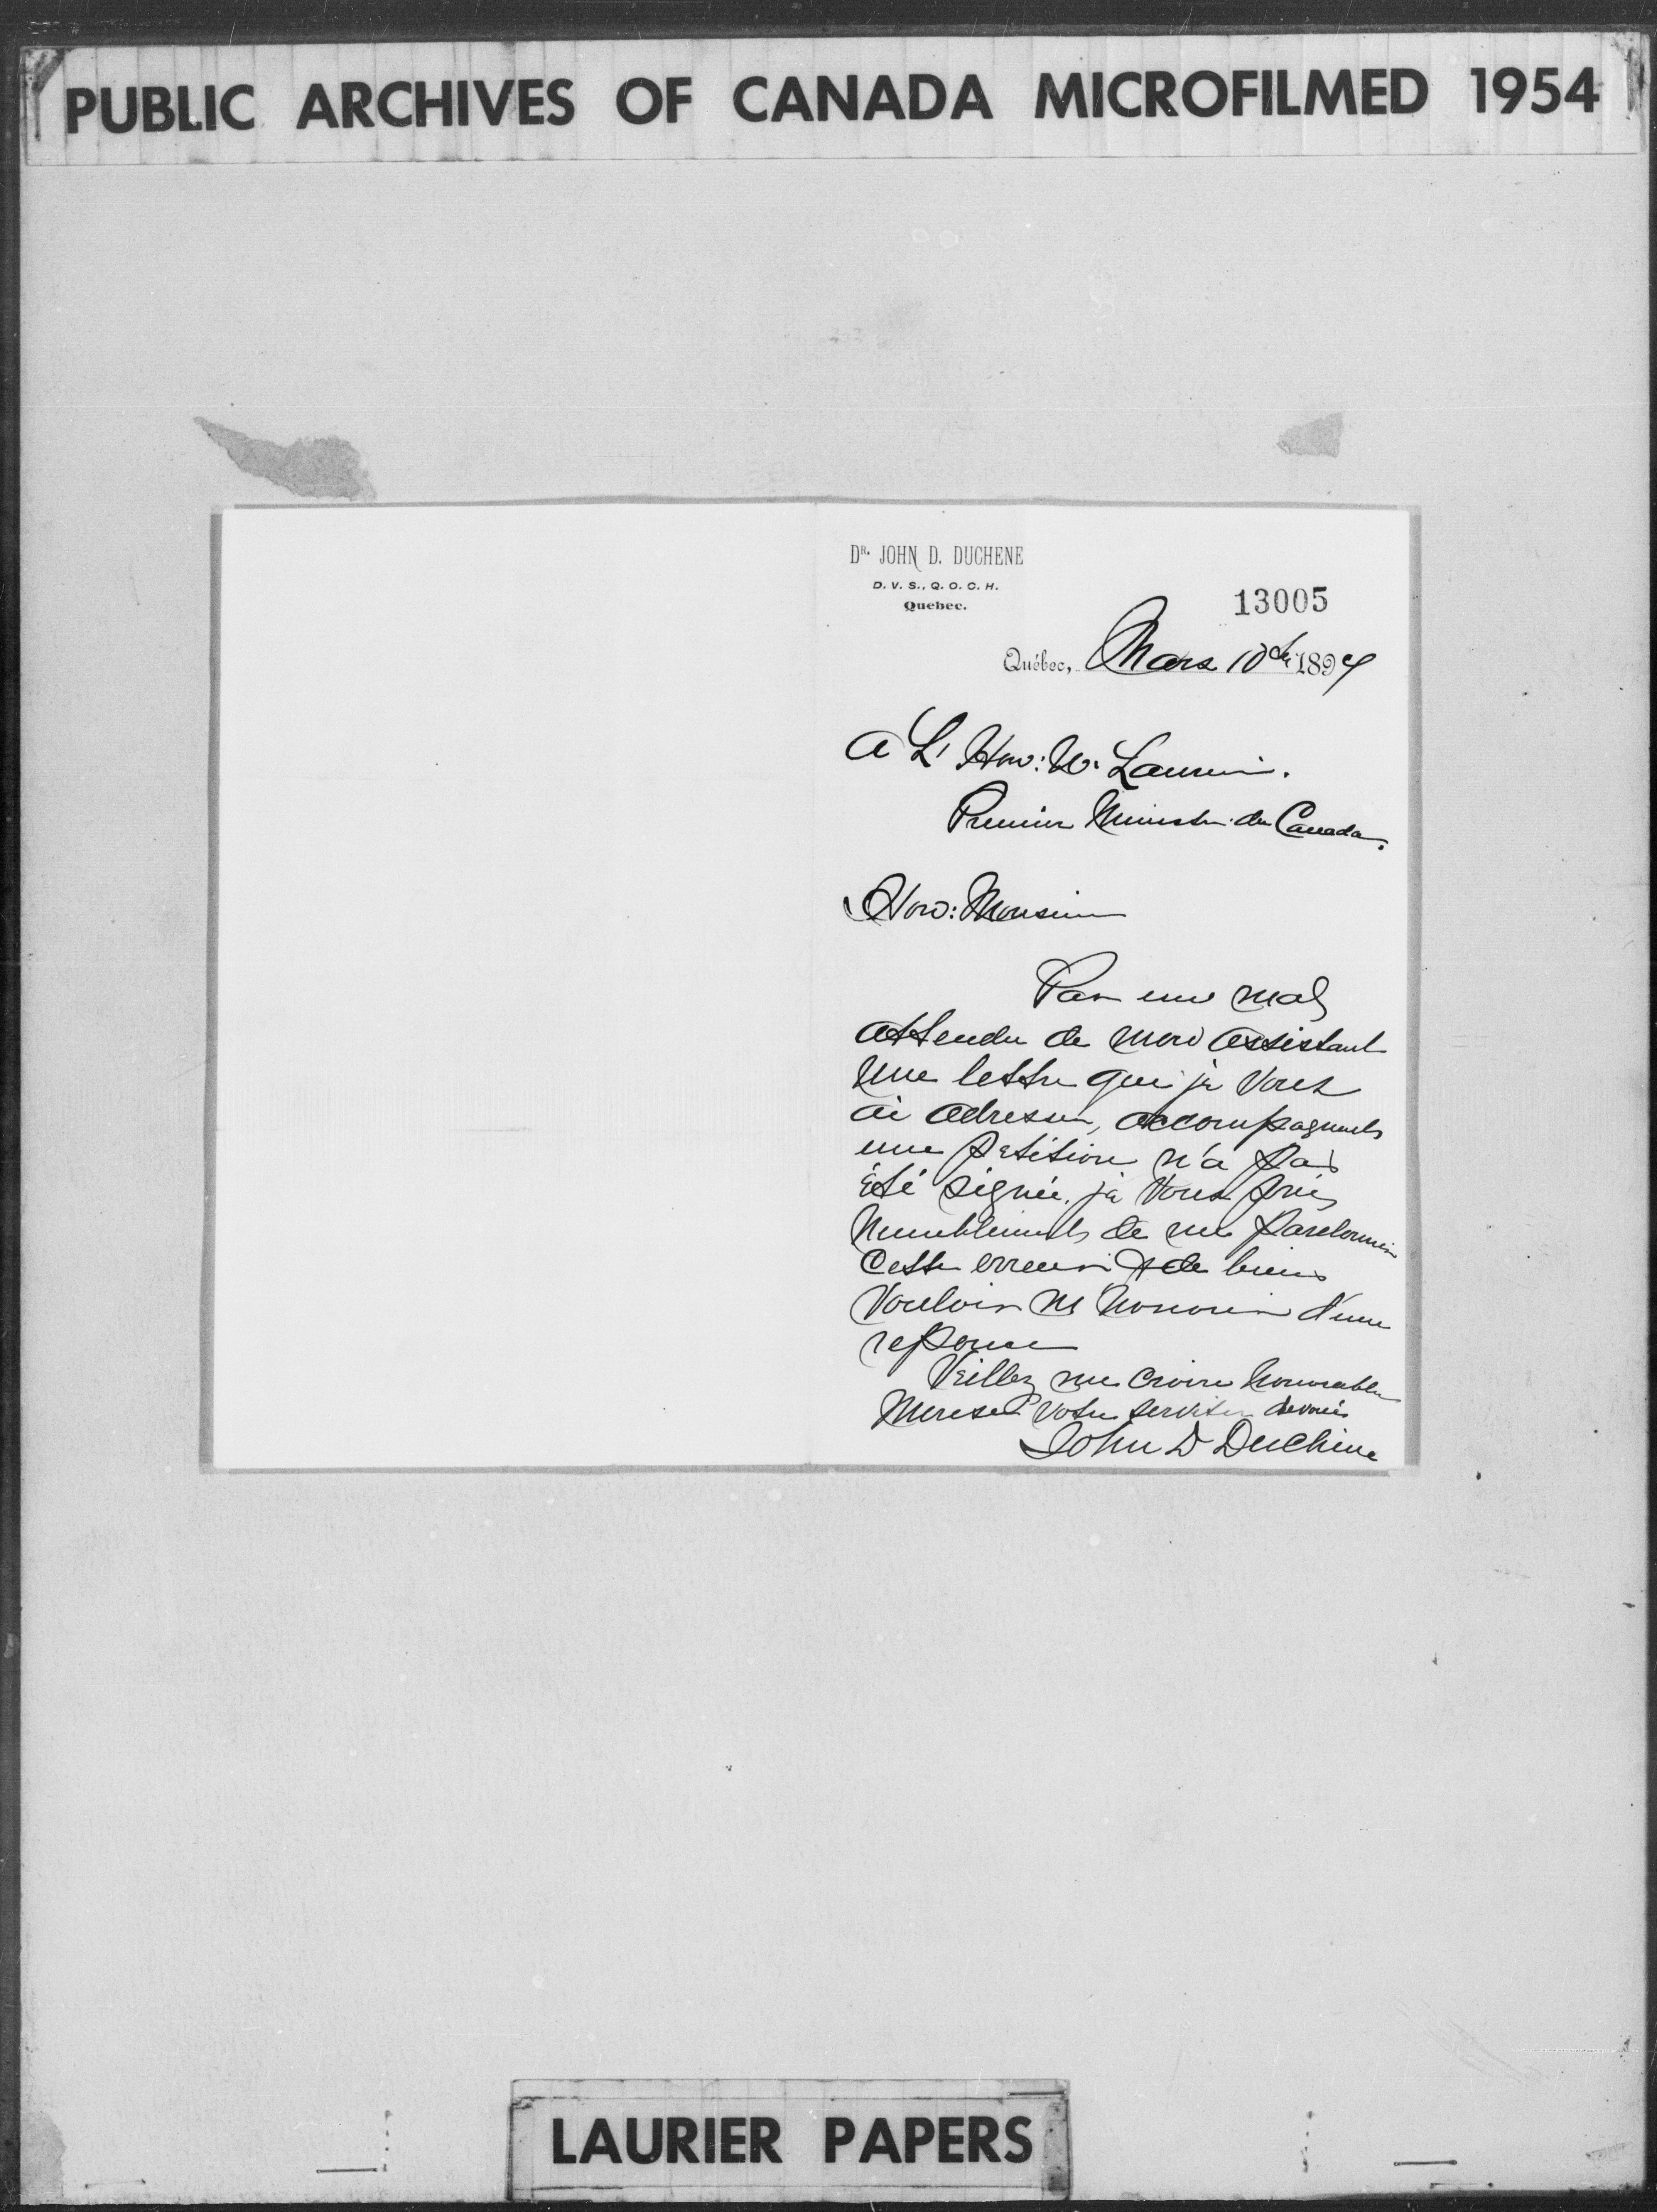 PUBLIC ARCHIVES OF CANADA MICROFILMED 1954
DR. JOHN D. DUCHENE
D. V. S., Q. O. C. H.
Quebec.
13005
Québec, Mars 10 1897
A L' Hon: W. Laurier.
Premier Ministre du Canada.
Hon: Monsieur
Par une mal
attendu de mon assistant
Une lettre que je vous
ai adresser, accompagnants
une petition n'a pas
été signée. je vous pries
humblements de me pardonner
Cette erreur & de bien
Vouloir m honorer d'une
reponse
Veillez me croire honorable
votre serviteur devoués
John D Duchene
LAURIER PAPERS